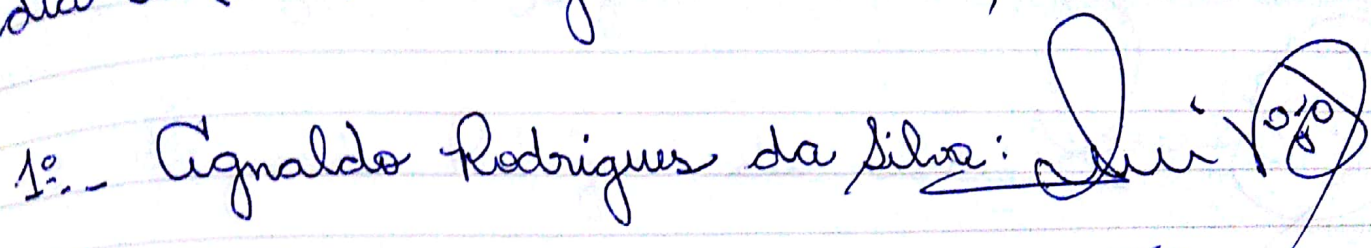 dia
1º.- Agnaldo Rodrigues da Silva: